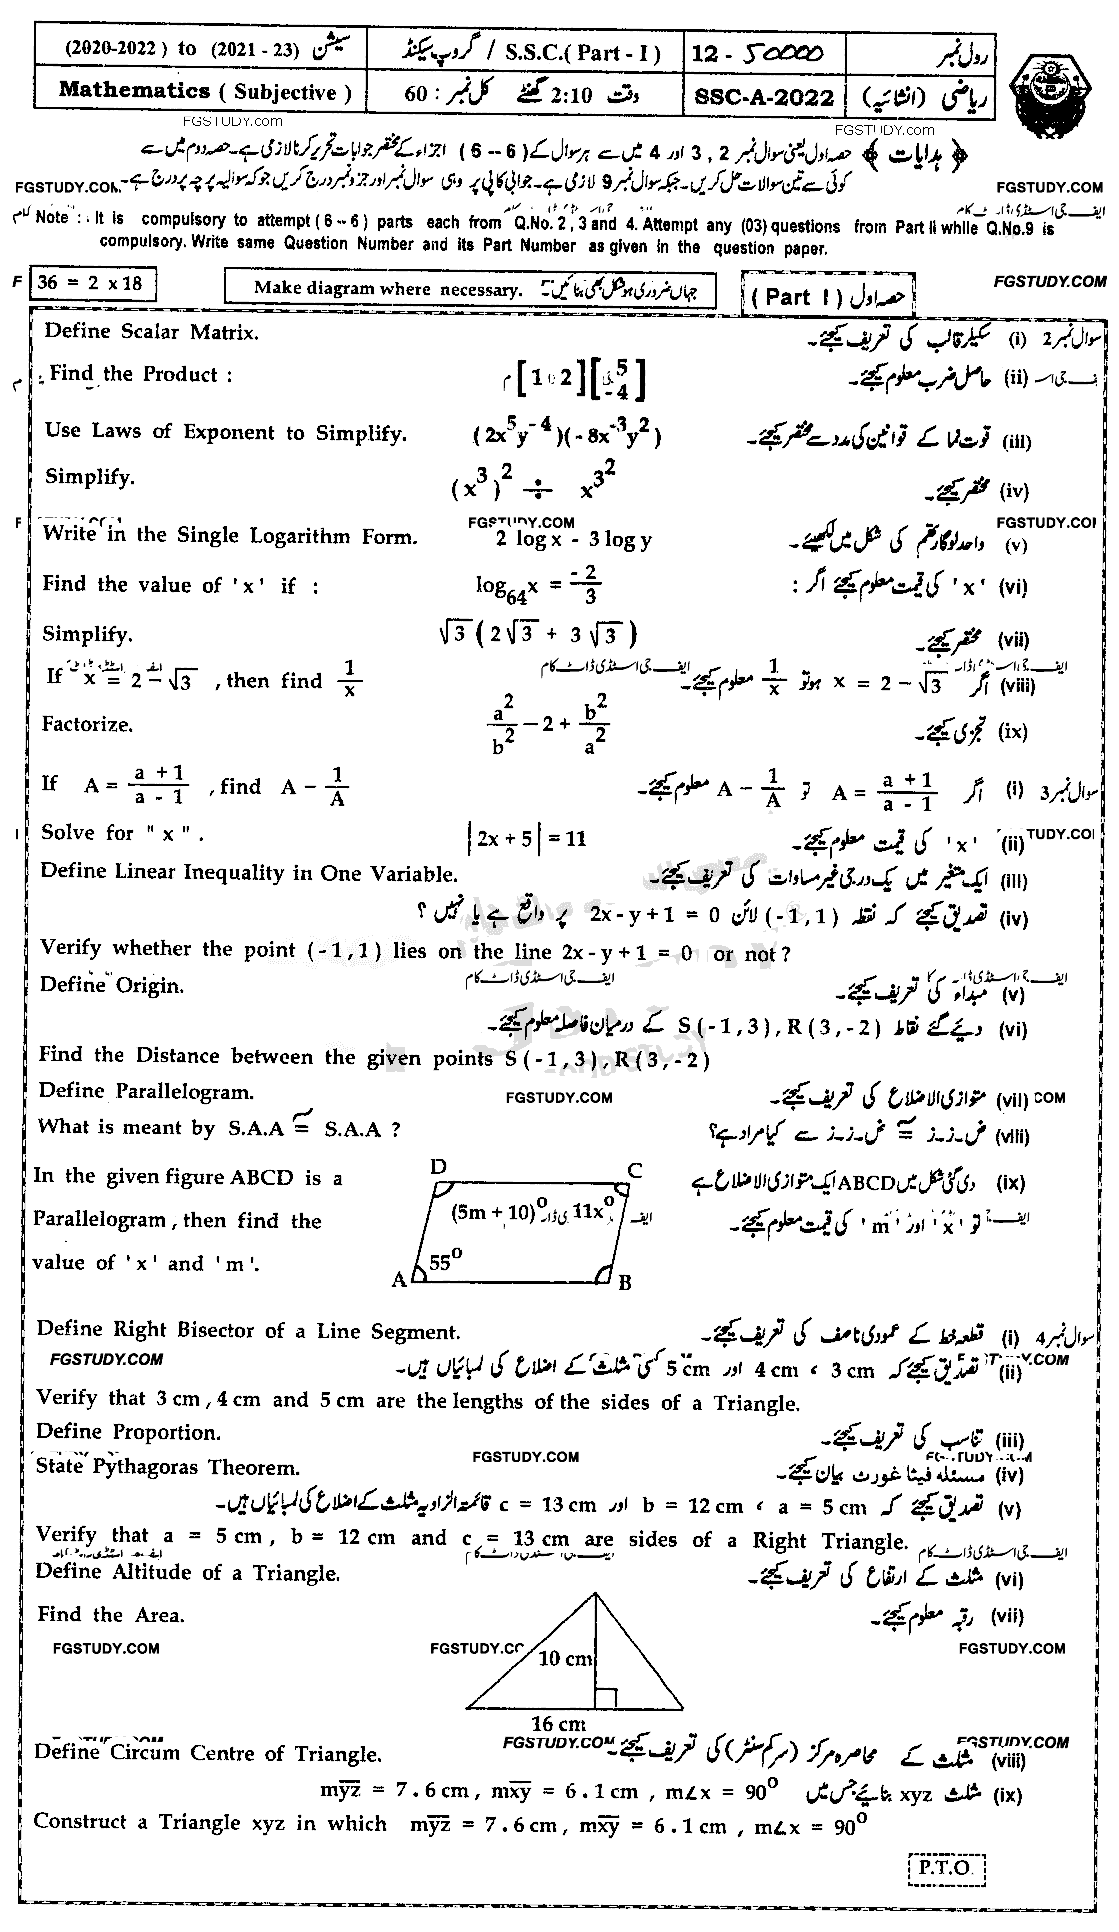 (2020-2022) to (2021-23) سیشن
S.S.C.(Part-I) / گروپ سیکنڈ
12-50000
رول نمبر
Mathematics (Subjective)
کل نمبر : 60
وقت 2:10 گھنٹے
SSC-A-2022
ریاضی (انشائیہ)
FGSTUDY.com
FGSTUDY.com
﴿ ہدایات ﴾ حصہ اول یعنی سوال نمبر 2 , 3 اور 4 میں سے ہر سوال کے (6 -- 6) اجزاء کے مختصر جوابات تحریر کرنا لازمی ہے۔ حصہ دوم میں سے
کوئی سے تین سوالات حل کریں۔ جبکہ سوال نمبر 9 لازمی ہے۔ جوابی کاپی پر وہی سوال نمبر اور جزو نمبر درج کریں جو کہ سوالیہ پرچہ پر درج ہے۔
FGSTUDY.COM
FGSTUDY.COM
Note : It is compulsory to attempt (6 -- 6) parts each from Q.No. 2, 3 and 4. Attempt any (03) questions from Part II while Q.No.9 is
compulsory. Write same Question Number and its Part Number as given in the question paper.
36 = 2 x 18
Make diagram where necessary. جہاں ضروری ہو شکل بھی بنائیں۔
(Part I) حصہ اول
FGSTUDY.COM
Define Scalar Matrix. سوال نمبر 2 (i) سکیلر قالب کی تعریف کیجئے۔
Find the Product : [1 2][5 -4] (ii) حاصل ضرب معلوم کیجئے۔
Use Laws of Exponent to Simplify. (2x⁵y⁻⁴)(-8x⁻³y²) (iii) قوت نما کے قوانین کی مدد سے مختصر کیجئے۔
Simplify. (x³)² ÷ x^3^2 (iv) مختصر کیجئے۔
FGSTUDY.COM
Write in the Single Logarithm Form. 2 log x - 3 log y (v) واحد لوگارتھم کی شکل میں لکھیے۔
Find the value of 'x' if : log₆₄x = -2/3 (vi) 'x' کی قیمت معلوم کیجئے اگر :
Simplify. √3(2√3 + 3√3) (vii) مختصر کیجئے۔
ایف جی اسٹڈی ڈاٹ کام
If x = 2 - √3 , then find 1/x (viii) اگر x = 2 - √3 ہو تو 1/x معلوم کیجئے۔
Factorize. a²/b² - 2 + b²/a² (ix) تجزی کیجئے۔
If A = (a + 1)/(a - 1) , find A - 1/A سوال نمبر 3 (i) اگر A = (a + 1)/(a - 1) تو A - 1/A معلوم کیجئے۔
Solve for " x " . |2x + 5| = 11 (ii) 'x' کی قیمت معلوم کیجئے۔
Define Linear Inequality in One Variable. (iii) ایک متغیر میں یک درجی غیر مساوات کی تعریف کیجئے۔
(iv) تصدیق کیجئے کہ نقطہ (-1,1) لائن 2x-y+1 = 0 پر واقع ہے یا نہیں ؟
Verify whether the point (-1,1) lies on the line 2x-y+1 = 0 or not?
Define Origin. (v) مبداء کی تعریف کیجئے۔
(vi) دیئے گئے نقاط S(-1,3), R(3,-2) کے درمیان فاصلہ معلوم کیجئے۔
Find the Distance between the given points S(-1,3), R(3,-2)
Define Parallelogram. FGSTUDY.COM (vii) متوازی الاضلاع کی تعریف کیجئے۔
What is meant by S.A.A ≅ S.A.A ? (viii) ض۔ز۔ز ≅ ض۔ز۔ز سے کیا مراد ہے؟
In the given figure ABCD is a (ix) دی گئی شکل میں ABCD ایک متوازی الاضلاع ہے
Parallelogram, then find the تو 'x' اور 'm' کی قیمت معلوم کیجئے۔
value of 'x' and 'm'.
D C
(5m + 10)⁰ 11x⁰
55⁰
A B
Define Right Bisector of a Line Segment. سوال نمبر 4 (i) قطعہ خط کے عمودی ناصف کی تعریف کیجئے۔
FGSTUDY.COM
(ii) تصدیق کیجئے کہ 3 cm ، 4 cm اور 5 cm کسی مثلث کے اضلاع کی لمبائیاں ہیں۔
Verify that 3 cm, 4 cm and 5 cm are the lengths of the sides of a Triangle.
Define Proportion. (iii) تناسب کی تعریف کیجئے۔
FGSTUDY.COM
State Pythagoras Theorem. (iv) مسئلہ فیثا غورث بیان کیجئے۔
(v) تصدیق کیجئے کہ a = 5 cm ، b = 12 cm اور c = 13 cm قائمۃ الزاویہ مثلث کے اضلاع کی لمبائیاں ہیں۔
Verify that a = 5 cm, b = 12 cm and c = 13 cm are sides of a Right Triangle.
ایف جی اسٹڈی ڈاٹ کام
Define Altitude of a Triangle. (vi) مثلث کے ارتفاع کی تعریف کیجئے۔
Find the Area. (vii) رقبہ معلوم کیجئے۔
FGSTUDY.COM
FGSTUDY.COM
10 cm
16 cm
FGSTUDY.COM
FGSTUDY.COM
Define Circum Centre of Triangle. (viii) مثلث کے محاصرہ مرکز (سرکم سنٹر) کی تعریف کیجئے۔
(ix) مثلث xyz بنائیے جس میں m<span style="text-decoration:overline">yz</span> = 7.6 cm, m<span style="text-decoration:overline">xy</span> = 6.1 cm , m∠x = 90⁰
Construct a Triangle xyz in which m<span style="text-decoration:overline">yz</span> = 7.6 cm, m<span style="text-decoration:overline">xy</span> = 6.1 cm , m∠x = 90⁰
P.T.O.